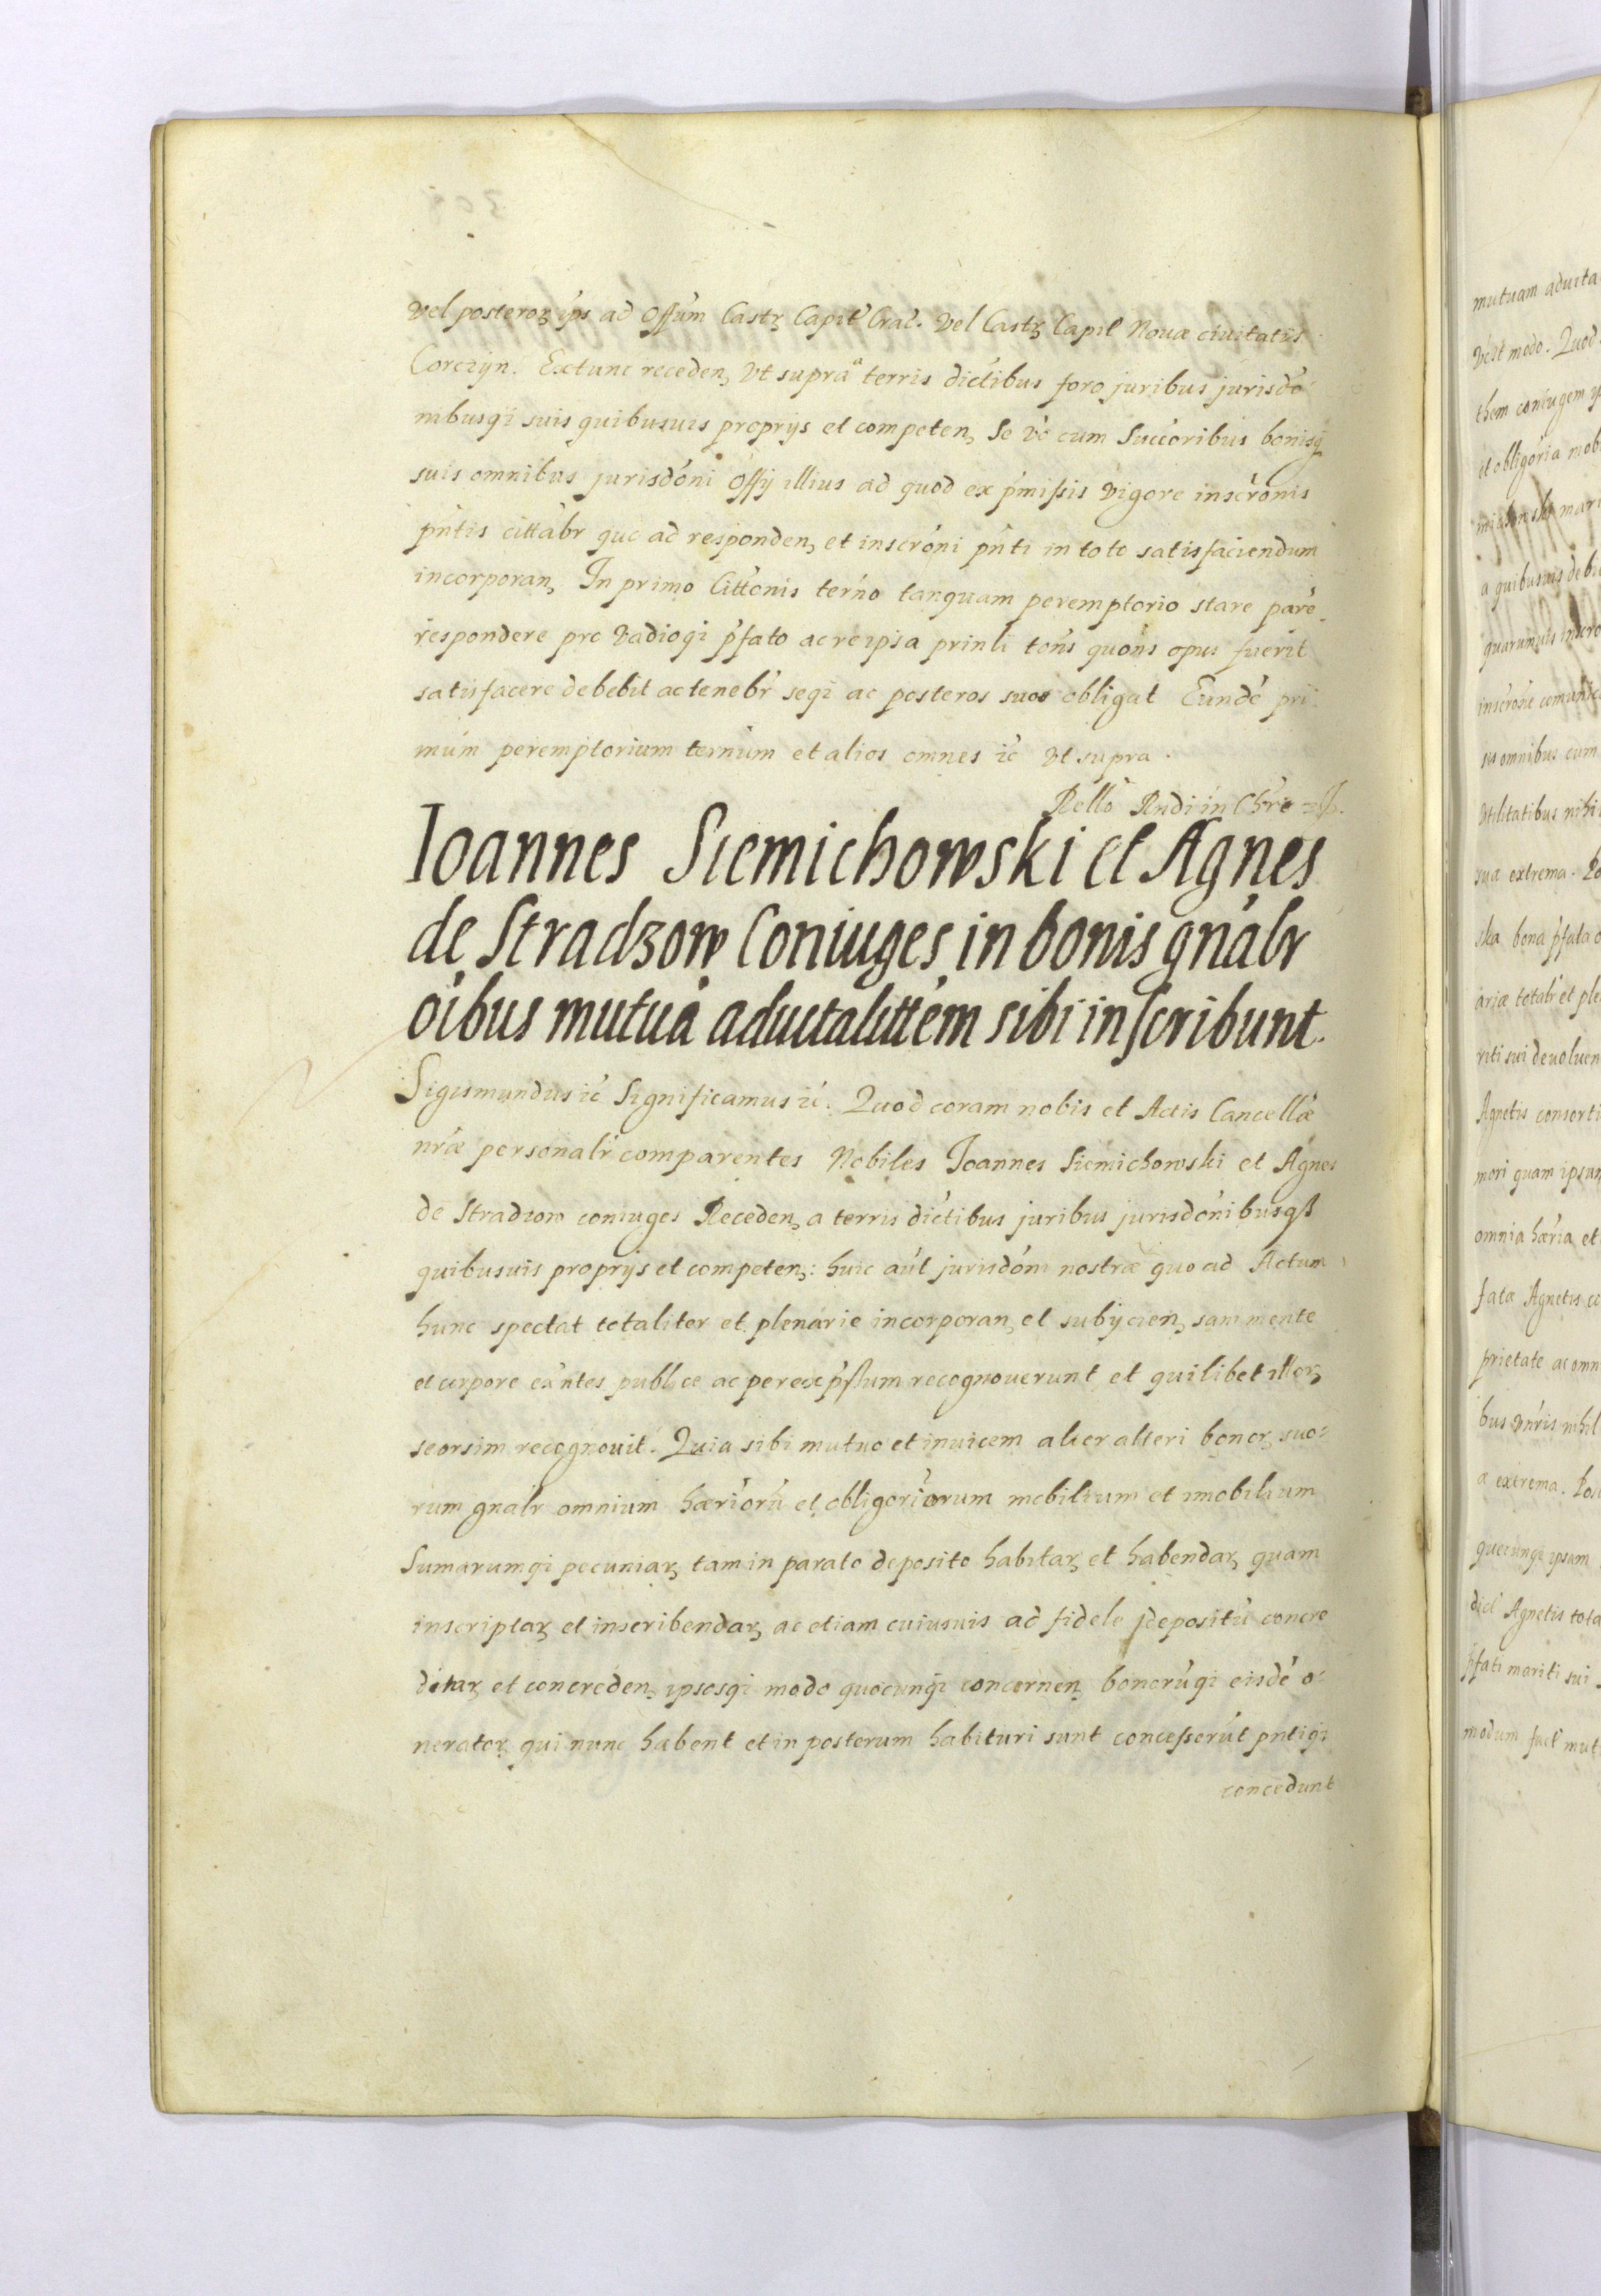 vel posteroꝝ ips ad Offūm Castꝝ Capit̃ Crac̃. vel Castꝝ Capit̃ Novæ civitatis
Corczyn. Extunc receden, vt supra ᵃ terris dictibus foro juribus jurisdó-
nibusqꝫ suis quibusuis proprijs et competen, Se vó cum Succoribus bonisqꝫ
suis omnibus jurisdóni Offij illius ad quod ex pŕmissis vigore inscrónis
pńtis cittabr̃ quo ad responden, et inscróni pńti in toto satisfaciendum
incorporan, In primo Cittonis terńo tanquam peremptorio stare paré
respondere pro vadioqꝫ pŕfato ac re ipsa prinli tońs quońs opus fuerit
satisfacere debebit ac tenebr̃ seqꝫ ac posteros suos obligat Eundé pri-
mum peremptorium ternum et alios omnes ić vt supra.
Relló Rndi in Chró
Ioannes Siemichowski et Agnes
de Stradzow Coniuges in bonis gnálr
oíbus mutuá aduitalittém sibi inscribunt.
Sigismundus ić Significamus ić. Quod coram nobis et Actis Cancellæ
nŕæ personalŕ comparentes Nobiles Joannes Siemichowski et Agnes
de Stradzow coniuges Receden, a terris dictibus juribus jurisdónibusqꝫ
quibusuis proprijs et competen,: huic aút jurisdóni nostræ quo ad Actum
hunc spectat totaliter et plenarie incorporan, et subijcien, sani mente
et corpore exńtes publice ac per expŕssum recognouerunt et quilibet illoꝝ
seorsim recognouit. Quia sibi mutuo et inuicem alter alteri bonoꝝ suo-
rum gnalr omnium hæriorú et obligoriorum mobilium et imobilium
Sumarumqꝫ pecuniaꝝ tam in parato deposito habitaꝝ et habendaꝝ quam
inscriptaꝝ et inscribendaꝝ ac etiam cuiusuis ad fidele depositú concre
ditaꝝ et concreden, ipsosqꝫ modo quocunqꝫ concernen, bonorúqꝫ eisdé o-
neratoꝝ qui nunc habent et in posterum habituri sunt concesserút pntiqꝫ
concedunt
mutuam aduita
modo. Quod
them coniugem
et obligoria mob
a quibusuis
sis omnibus cum
vtilitatibus nihi
sua extrema.
ska bona pŕfata
ariæ totalr et ple
riti sui deuoluen
Agnetis consorti
mori quam ipsam
omnia hæria et
fata Agnetis co
prietate ac omn
nihil
a extrema.
quecunqꝫ ipsam
dict Agnetis tota
pŕfati mariti sui
modum fact mut